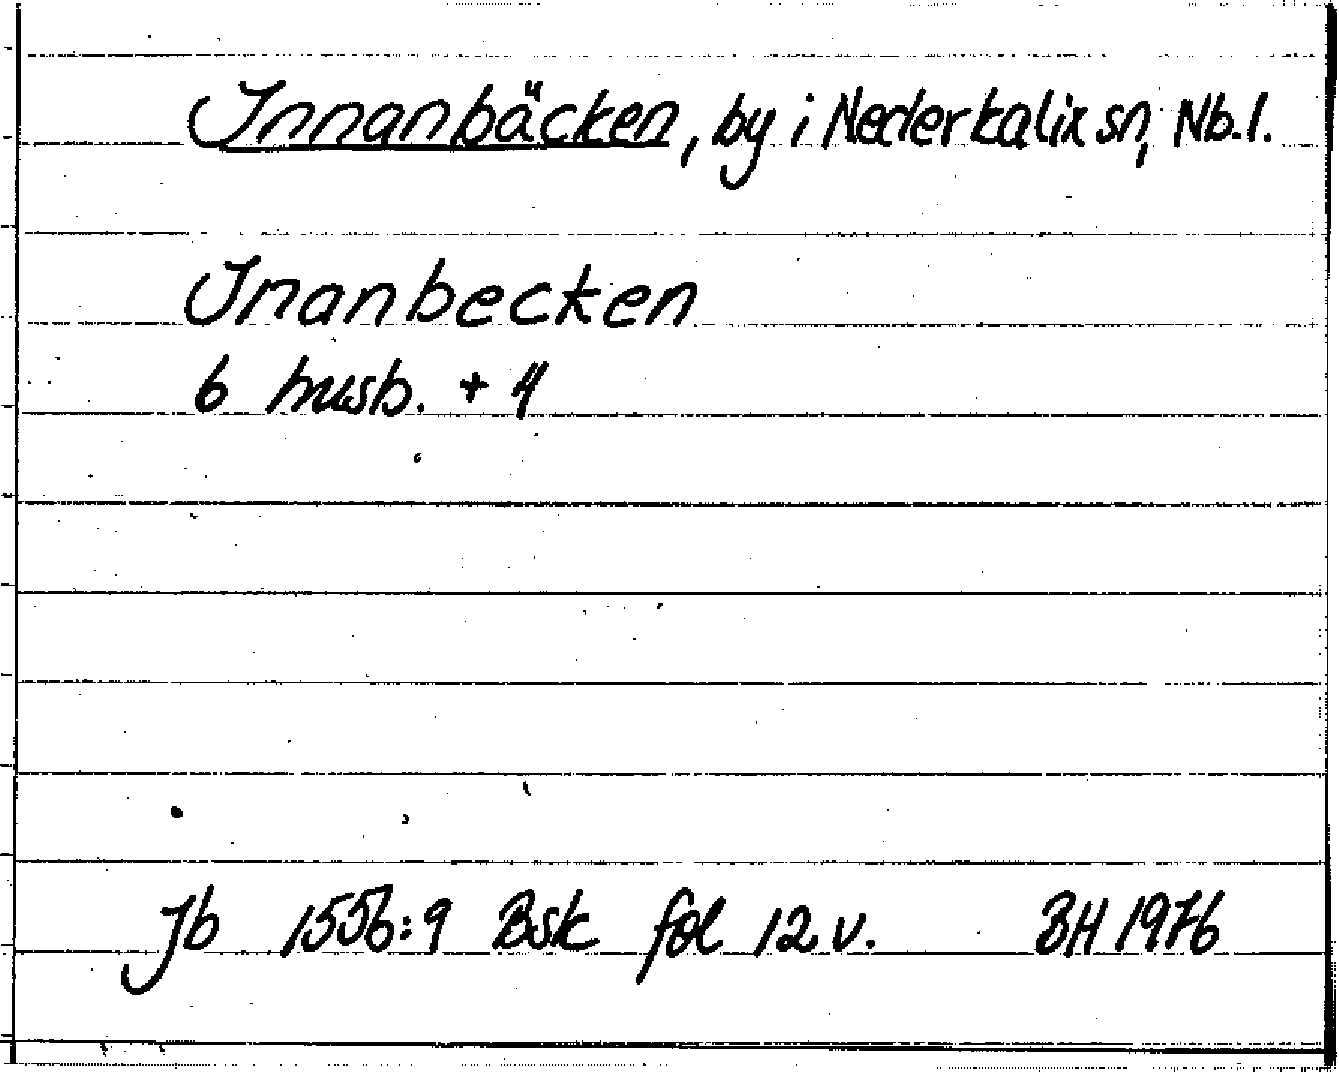 Innanbäcken, by i Nederkalix sn, Nb.l.
Inanbecken
6 husb. + 4
Jb 1556:9 Bsk fol 12 v. BH 1976